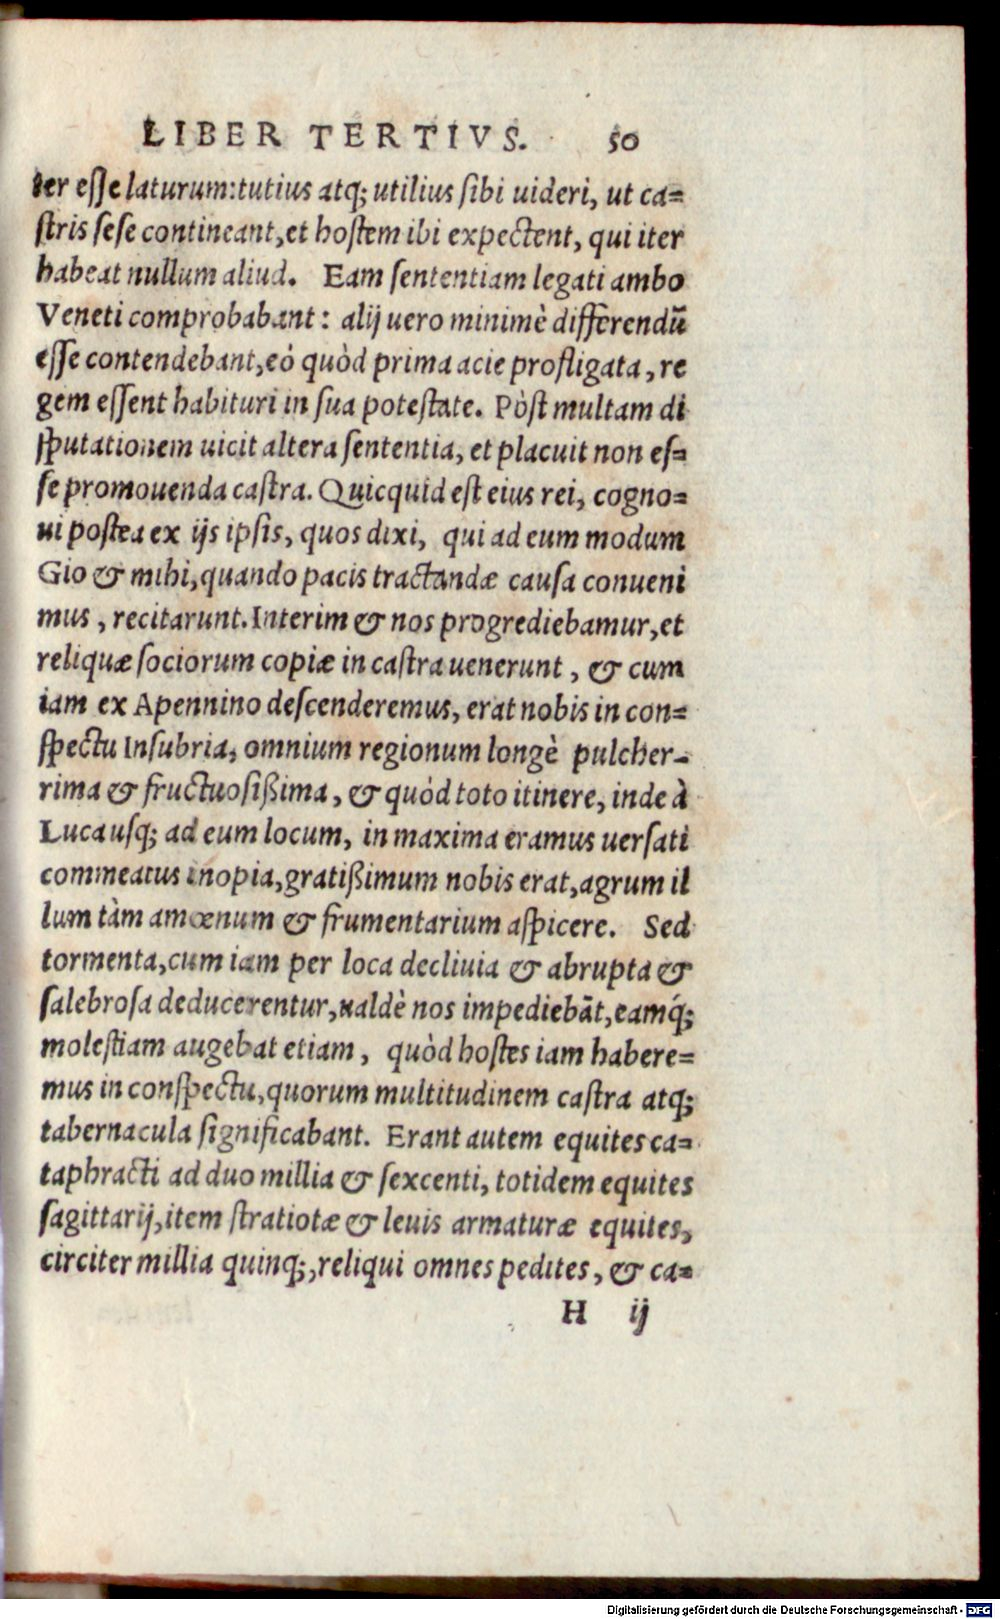 LIBER TERTIVS. 50
ter esse laturum: tutius atq; utilius sibi uideri, ut ca=
stris sese contineant, et hostem ibi expectent, qui iter
habeat nullum aliud. Eam sententiam legati ambo
Veneti comprobabant: alij uero minimè differendū
esse contendebant, eò quòd prima acie profligata, re
gem essent habituri in sua potestate. Pòst multam di
sputationem uicit altera sententia, et placuit non es=
se promouenda castra. Quicquid est eius rei, cogno=
ui postea ex ijs ipsis, quos dixi, qui ad eum modum
Gio & mihi, quando pacis tractandæ causa conueni
mus, recitarunt. Interim & nos progrediebamur, et
reliquæ sociorum copiæ in castra uenerunt, & cum
iam ex Apennino descenderemus, erat nobis in con=
spectu Insubria, omnium regionum longè pulcher-
rima & fructuosißima, & quòd toto itinere, inde à
Luca usq; ad eum locum, in maxima eramus uersati
commeatus inopia, gratißimum nobis erat, agrum il
lum tàm amœnum & frumentarium aspicere. Sed
tormenta, cum iam per loca decliuia & abrupta &
salebrosa deducerentur, ualdè nos impediebāt, eamq́;
molestiam augebat etiam, quòd hostes iam habere=
mus in conspectu, quorum multitudinem castra atq;
tabernacula significabant. Erant autem equites ca=
taphracti ad duo millia & sexcenti, totidem equites
sagittarij, item stratiotæ & leuis armaturæ equites,
circiter millia quinq;, reliqui omnes pedites, & ca=
H ij
Digitalisierung gefördert durch die Deutsche Forschungsgemeinschaft - DFG